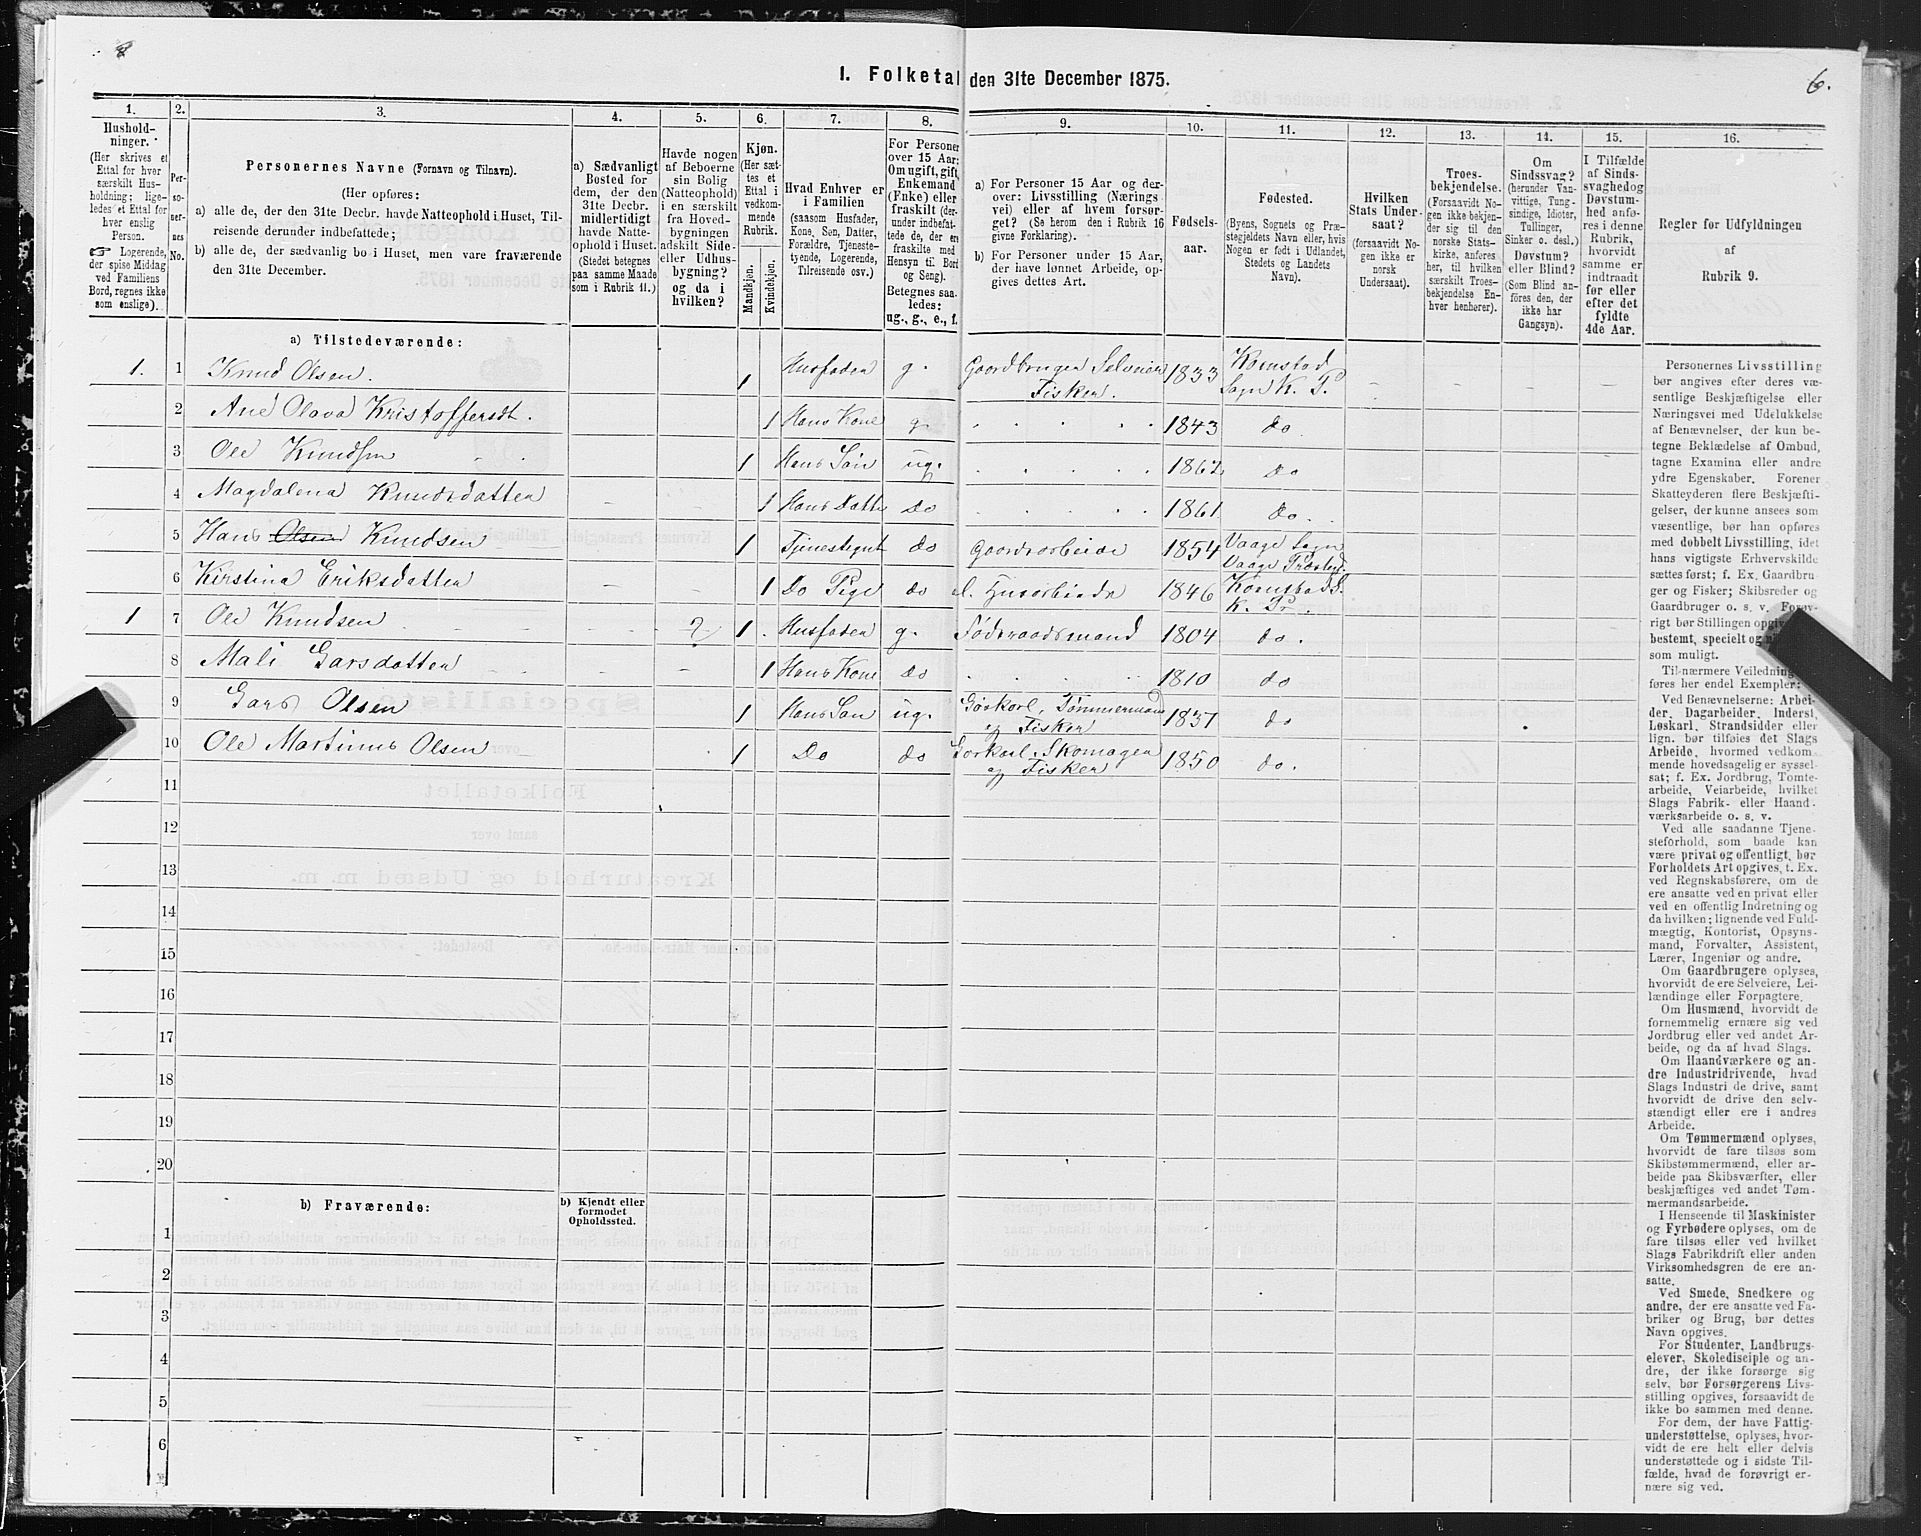 8
6.
I. Folketal den 31te December 1875.
1.
Hushold-
ninger.
(Her skrives et
Ettal for hver
særskilt Hus-
holdning; lige-
ledes et Ettal for
hver enslig
Person.
☞ Logerende,
der spise Middag
ved Familiens
Bord, regnes ikke
som enslige).
2.
Per-
so-
ner-
nes
No.
3.
Personernes Navne (Fornavn og Tilnavn).
(Her opføres:
a) alle de, der den 31te Decbr. havde Natteophold i Huset, Til-
reisende derunder indbefattede;
b) alle de, der sædvanlig bo i Huset, men vare fraværende
den 31te December.
4.
a) Sædvanligt
Bosted for
dem, der den
31te Decbr.
midlertidigt
havde Natte-
ophold i Huset.
(Stedet betegnes
paa samme Maade
som i Rubrik 11.)
5.
Havde nogen
af Beboerne
sin Bolig
(Natteophold)
i en særskilt
fra Hoved-
bygningen
adskilt Side-
eller Udhus-
bygning?
og da i
hvilken?
6.
Kjøn.
(Her sæt-
tes et
Ettal i
vedkom-
mende
Rubrik.
Mandkjøn.
Kvindekjøn.
7.
Hvad Enhver er
i Familien
(saasom Husfader,
Kone, Søn, Datter,
Forældre, Tjeneste-
tyende, Logerende,
Tilreisende osv.)
8.
For Personer
over 15 Aar:
Om ugift, gift,
Enkemand
(Enke) eller
fraskilt (der-
under indbefat-
tede de, der ere
fraskilte med
Hensyn til Bord
og Seng).
Betegnes saa-
ledes:
ug., g., e., f.
9.
a) For Personer 15 Aar og der-
over: Livsstilling (Nærings-
vei) eller af hvem forsør-
get? (Se herom den i Rubrik 16
givne Forklaring).
b) For Personer under 15 Aar,
der have lønnet Arbeide, op-
gives dettes Art.
10.
Fødsels-
aar.
11.
Fødested.
(Byens, Sognets og Præ-
stegjeldets Navn eller, hvis
Nogen er født i Udlandet,
Stedets og Landets
Navn).
12.
Hvilken
Stats Under-
saat?
(forsaavidt No-
gen ikke er
norsk
Undersaat).
13.
Troes-
bekjendelse.
(Forsaavidt No-
gen ikke bekjen-
der sig til den
norske Stats-
kirke, anføres
her, til hvilken
særskilt Troes-
bekjendelse En-
hver henhører).
14.
Om
Sindssvag?
(herunder Van-
vittige, Tung-
sindige, Idioter,
Tullinger,
Sinker o. desl.)
Døvstum?
eller Blind?
(Som Blind an-
føres den, der
ikke har
Gangsyn).
15.
I Tilfælde
af Sinds-
svaghed og
Døvstum-
hed anfø-
res i denne
Rubrik,
hvorvidt
samme er
indtraadt
før eller
efter det
fyldte
4de Aar.
16.
Regler for Udfyldningen
af
Rubrik 9.
a) Tilstedeværende:
1. 1 Knud Olsen. 1 Husfader g. Gaardbruger Selveier Fisker. 1833 Kornstad Sogn K. P.
2 Ane Olava Kristoffersdt. 1 Hans Kone g. 1843 do.
3 Ole Knudsen 1 Hans Søn ug. 1862 Do
4 Magdalena Knudsdatter 1 Hans Datte Do 1861 do.
5 Hans Olsen Knudsen 1 Tjenestegut do Gaardsarbeide 1854 Vaage Sogn Vaage
6 Kirstina Eriksdatter 1 Do Pige do Husarbeide 1846 Kornstad S. K. Pr.
1 7 Ole Knudsen 2 1. Husfader g. Føderaadsmand 1804 do.
8 Mali Larsdatter 1 Hans Kone do 1810 do
9 Lars Olsen 1 Hans Søn ug. Løskarl, Tømmermand og Fisker 1837 do
10 Ole Martinus Olsen 1 Do do Løskarl, Skomager og Fisker 1850 do.
11
12
13
14
15
16
17
18
19
20
b) Fraværende:
b) Kjendt eller
formodet
Opholdssted.
1
2
3
4
5
6
Personernes Livsstilling
bør angives efter deres væ-
sentlige Beskjæftigelse eller
Næringsvei med Udelukkelse
af Benævnelser, der kun be-
tegne Beklædelse af Ombud,
tagne Examina eller andre
ydre Egenskaber. Forener
Skatteyderen flere Beskjæfti-
gelser, der kunne ansees som
væsentlige, bør han opføres
med dobbelt Livsstilling, idet
hans vigtigste Erhvervskilde
sættes først; f. Ex. Gaardbru-
ger og Fisker; Skibsreder og
Gaardbruger o. s. v. Forøv-
rigt bør Stillingen opgives
bestemt, specielt og
som muligt.
Til nærmere Veiledning
føres her endel Exempler:
Ved Benævnelserne: Arbei-
der, Dagarbeider, Inderst,
Løskarl, Strandsidder eller
lign. bør tilføies det Slags
Arbeide, hvormed vedkom-
mende hovedsagelig er syssel-
sat; f. Ex. Jordbrug, Tomte-
arbeide, Veiarbeide, hvilket
Slags Fabrik- eller Haand-
værksarbeide o. s. v.
Ved alle saadanne Tjene-
steforhold, som baade kan
være privat og offentligt, bør
Forholdets Art opgives, t. Ex.
ved Regnskabsførere, om de
ere ansatte ved en privat eller
ved en offentlig Indretning og
da hvilken; lignende ved Fuld-
mægtig, Kontorist, Opsyns-
mand, Forvalter, Assistent,
Lærer, Ingeniør og andre.
Om Gaardbrugere oplyses,
hvorvidt de ere Selveiere, Lei-
lændinge eller Forpagtere.
Om Husmænd, hvorvidt de
fornemmelig ernære sig ved
Jordbrug eller ved andet Ar-
beide, og da af hvad Slags.
Om Haandværkere og an-
dre Industridrivende, hvad
Slags Industri de drive, samt
hvorvidt de drive den selv-
stændigt eller ere i andres
Arbeide.
Om Tømmermænd oplyses,
hvorvidt de fare tilsøs som
Skibstømmermænd, eller ar-
beide paa Skibsværfter, eller
beskjæftiges ved andet Tøm-
mermandsarbeide.
I Henseende til Maskinister
og Fyrbødere oplyses, om de
fare tilsøs eller ved hvilket
Slags Fabrikdrift eller anden
Virksomhedsgren de ere an-
satte.
Ved Smede, Snedkere og
andre, der ere ansatte ved Fa-
briker og Brug, bør dettes
Navn opgives.
For Studenter, Landbrugs-
elever, Skoledisciple og an-
dre, der ikke forsørge sig
selv, bør Forsørgerens Livs-
stilling opgives, forsaavidt de
ikke bo sammen med denne.
For dem, der have Fattig-
understøttelse, oplyses, hvor-
vidt de ere helt eller delvis
understøttede og i sidste Til-
fælde, hvad de forøvrigt er-
nære sig ved.